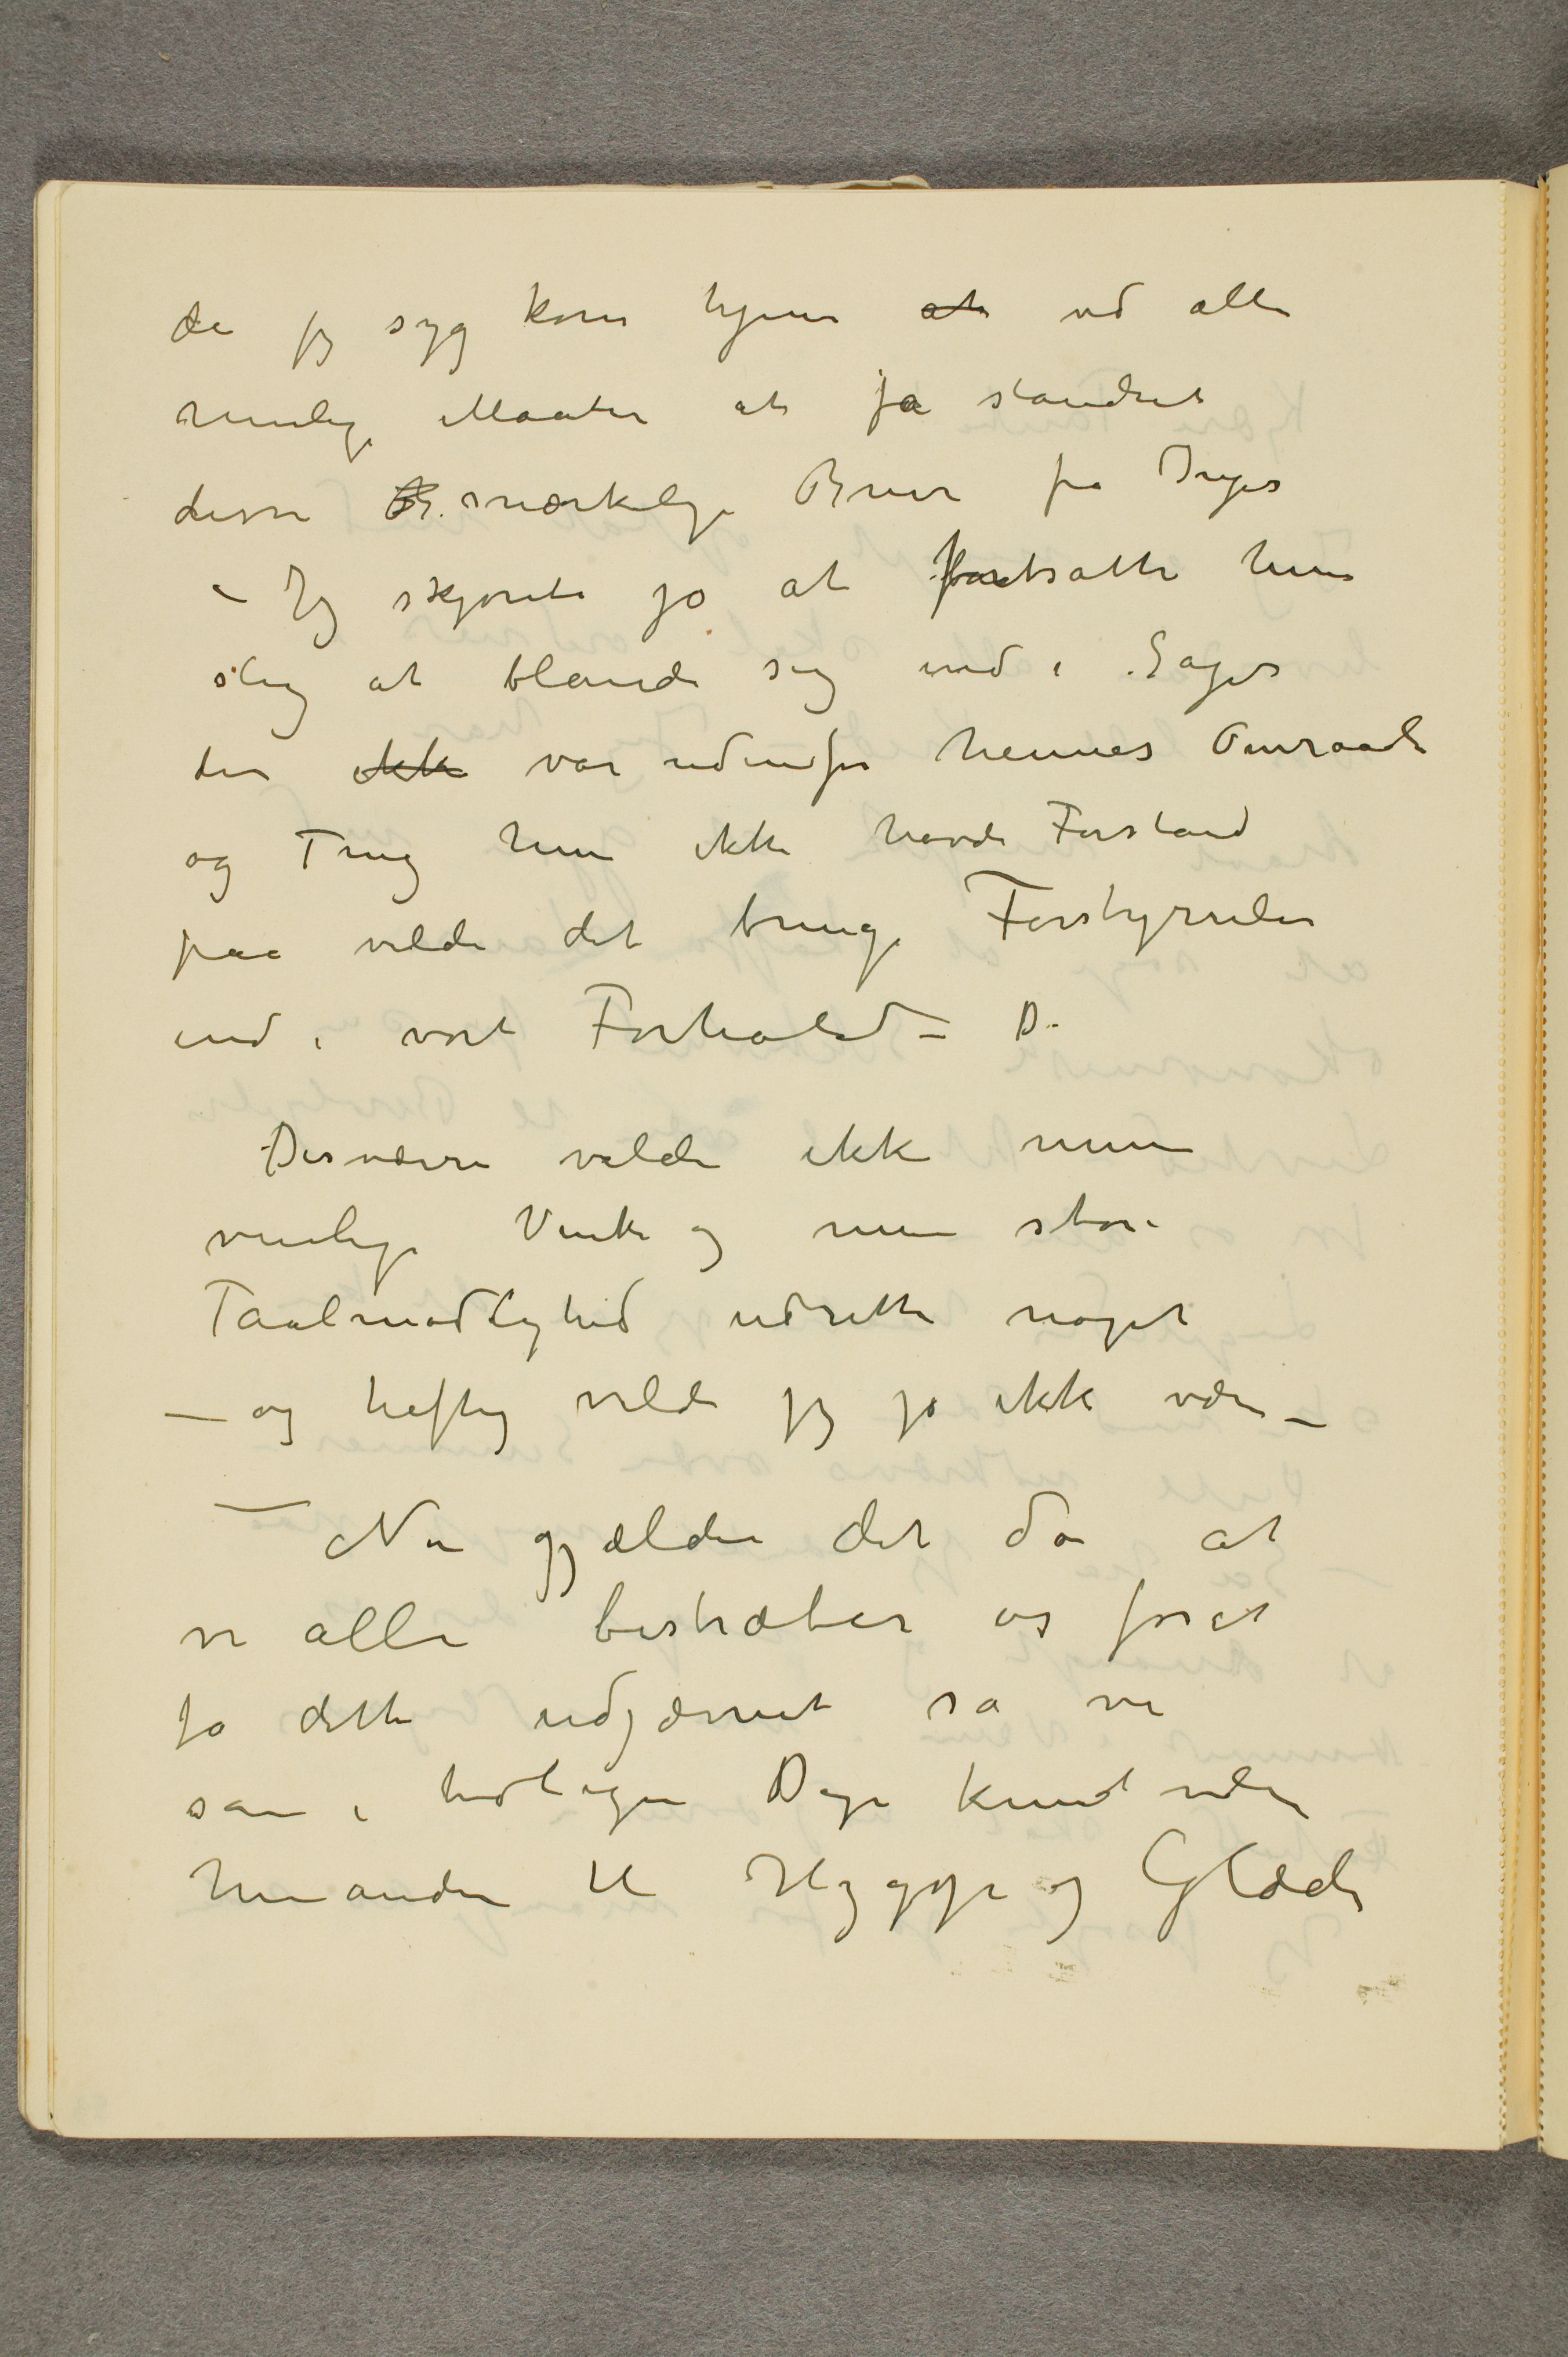 da jeg syg kom hjem at ved alle
mulige Maater at få standset
disse Br. mærkelige Breve fra Inger
– Jeg skjønte jo at fortsatte hun
slig at blande sig ind i Sager
der ikke var udenfor hennes Omraade
og Ting hun ikke havde Forstand
paa vilde det bringe Forstyrrelser
ind i vort Forhold – D.
Desværre vilde ikke mine
venlige Vink og min store
Taalmodighed udrette noget
– og heftig vilde jeg jo ikke være –
– Nu gjælder det da at
vi alle bestræber os for at
få dette udjævnet så vi
som i tidligere Dage kunde være
hinanden til Hygge og Glæde